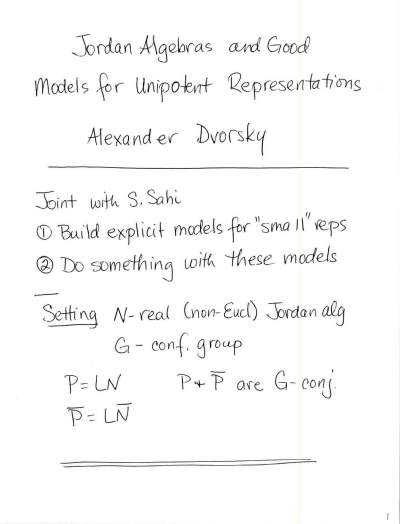 Jordan Algebras and Good
Models for Unipotent Representations
Alexander Dvorsky
Joint with S. Sahi
① Build explicit models for "small" reps
② Do something with these models
Setting N-real (non-Eucl) Jordan alg
G - conf. group
P = LN P + P̅ are G-conj.
P̅ = LN̅
1